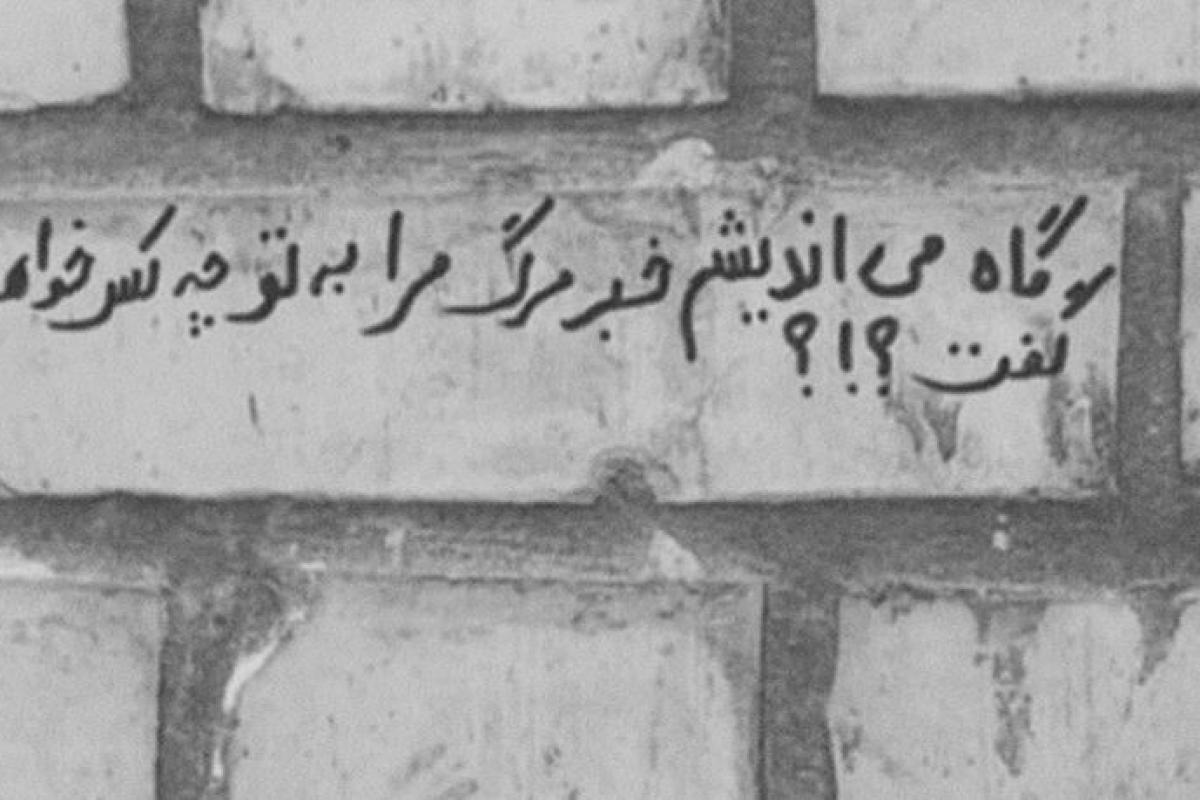 گاه می اندیشم خبر مرگ مرا به تو چه کس خواه
گفت ؟!؟